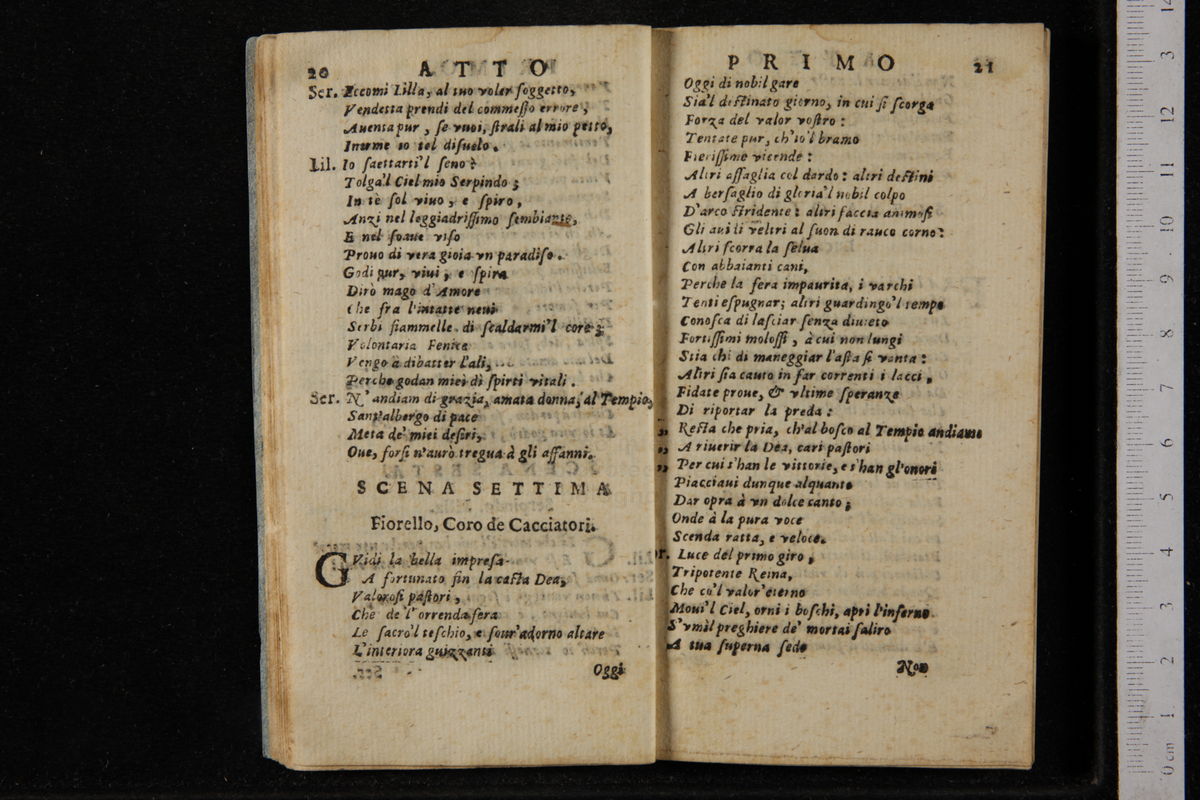 20 ATTO
Ser. Eccomi Lilla, al tuo voler soggetto,
Vendetta prendi del commesso errore,
Auenta pur, se vuoi, strali al mio petto,
Inerme io tel disuelo.
Lil. Io saettarti'l seno?
Tolga'l Ciel mio Serpindo;
In te sol viuo, e spiro,
Anzi nel leggiadrissimo sembiante,
E nel soaue viso
Prouo di vera gioia vn paradiso.
Godi pur, viui, e spira
Dirò mago d'Amore
Che fra l'intatte neui
Serbi fiammelle di scaldarmi'l core;
Volontaria Fenice
Vengo à dibatter l'ali,
Perche godan miei dì spirti vitali.
Ser. N'andiam di grazia, amata donna, al Tempio,
Sant'albergo di pace
Meta de' miei desiri,
Oue, forsi n'aurò tregua à gli affanni.
SCENA SETTIMA
Fiorello, Coro de Cacciatori.
GVidi la bella impresa
A fortunato fin la casta Dea,
Valorosi pastori,
Che de l'orrenda fera
Le sacro'l teschio, e sour'adorno altare
L'interiora guizzanti
Oggi
PRIMO 21
Oggi di nobil gare
Sia'l destinato giorno, in cui si scorga
Forza del valor vostro:
Tentate pur, ch'io'l bramo
Fierissime vicende:
Altri assaglia col dardo: altri destini
A bersaglio di gloria'l nobil colpo
D'arco stridente: altri faccia animosi
Gli auiti veltri al suon di rauco corno:
Altri scorra la selua
Con abbaianti cani,
Perche la fera impaurita, i varchi
Tenti espugnar; altri guardingo'l tempo
Conosca di lasciar senza diueto
Fortissimi molossi, à cui non lungi
Stia chi di maneggiar l'asta si vanta:
Altri sia cauto in far correnti i lacci,
Fidate proue, & vltime speranze
Di riportar la preda:
„ Resta che pria, ch'al bosco al Tempio andiamo
„ A riuerir la Dea, cari pastori
„ Per cui s'han le vittorie, e s'han gl'onori
Piacciaui dunque alquanto
Dar opra à vn dolce canto;
Onde à la pura voce
Scenda ratta, e veloce.
r. Luce del primo giro,
Tripotente Reina,
Che co'l valor'eterno
Moui'l Ciel, orni i boschi, apri l'inferno
S'vmìl preghiere de' mortai saliro
A tua superna sede
Non